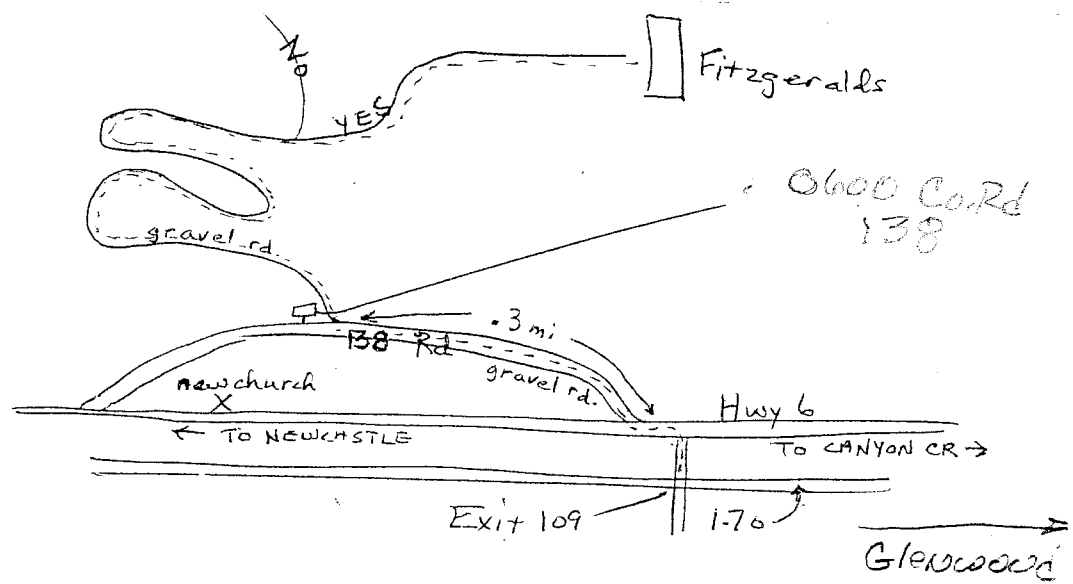 No
YES
Fitzgeralds
0600 Co. Rd
138
gravel rd.
.3 mi
138 Rd
gravel rd.
new church
X
Hwy 6
← TO NEWCASTLE
TO CANYON CR →
Exit 109
I-70
Glenwood